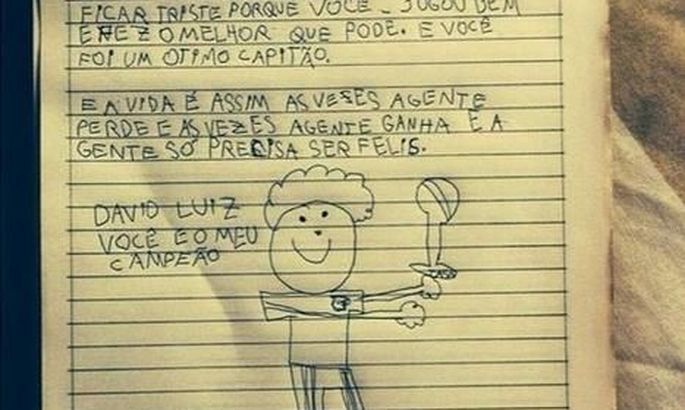 FICAR TRISTE PORQUE VOCE JOGOU BEM
E FEZ O MELHOR QUE PODE. E VOCÊ
FOI UM OTIMO CAPITÃO.
E A VIDA É ASSIM AS VESES AGENTE
PERDE E AS VEZES AGENTE GANHA E A
GENTE SÓ PRECISA SER FELIS.
DAVID LUIZ
VOCÊ E O MEU
CAMPEÃO